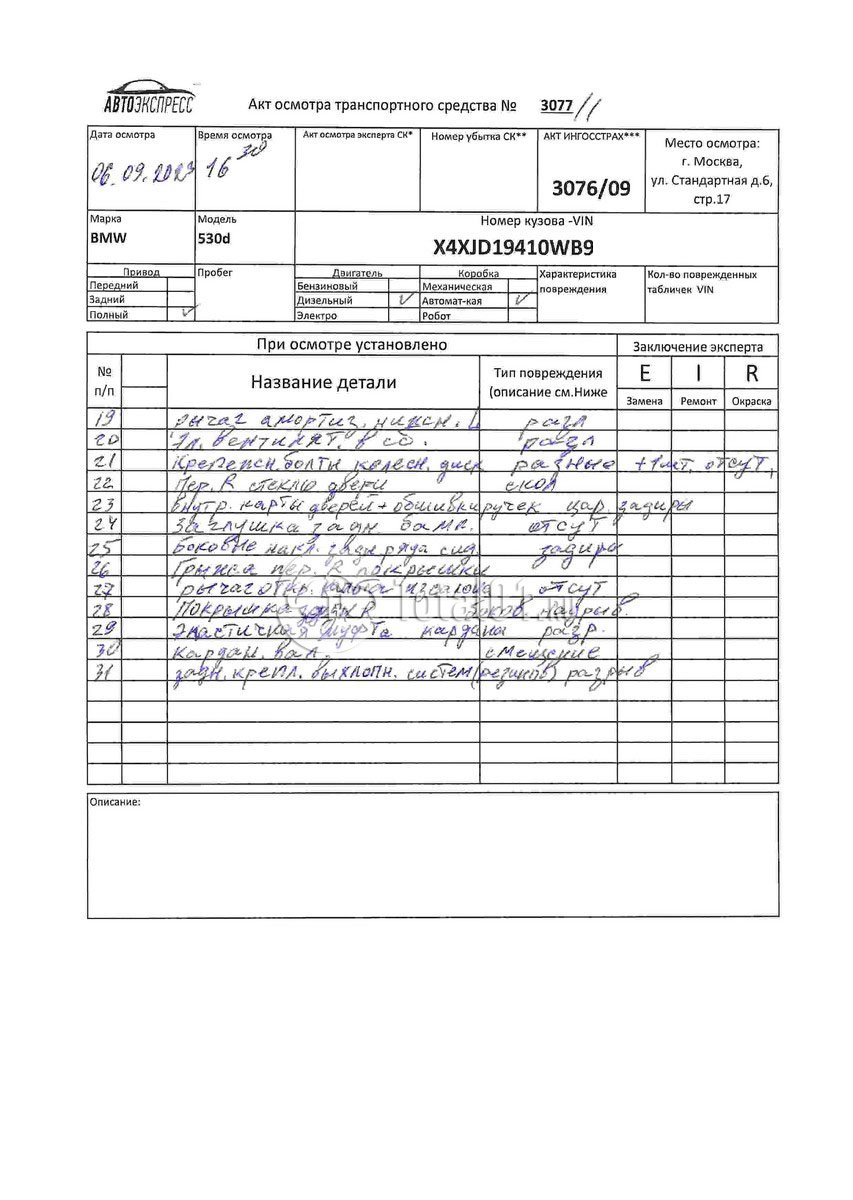 АВТОЭКСПРЕСС
Акт осмотра транспортного средства № 3077//
Дата осмотра
Время осмотра
Акт осмотра эксперта СК*
Номер убытка СК**
АКТ ИНГОССТРАХ***
Место осмотра:
г. Москва,
ул. Стандартная д.6,
стр.17
06.09.2023
16 30
3076/09
Марка
Модель
Номер кузова -VIN
BMW
530d
X4XJD19410WB9
Привод
Пробег
Двигатель
Коробка
Характеристика
повреждения
Кол-во поврежденных
табличек VIN
Передний
Бензиновый
Механическая
Задний
Дизельный
Автомат-кая
Полный
Электро
Робот
При осмотре установлено
Заключение эксперта
№
п/п
Название детали
Тип повреждения
(описание см.Ниже
E I R
Замена Ремонт Окраска
19 рычаг амортиз. нижн. L разл
20 Эл. вентилят. в сб. разл
21 Крепежн. болты колесн. диск разные +1шт. отсут,
22 Пер. R стекло двери скол
23 внутр. карты дверей + обшивки ручек цар. задиры
24 Заглушка задн. бамп. отсут
25 Боковые накл. задн ряда сид. задиры
26 Грыжа пер. R покрышки
27 рычаг откр. капота из салона отсут
28 Покрышка задн R боков надрыв.
29 Эластичная муфта кардана разр.
30 кардан. вал. смещение
31 задн. крепл. выхлопн. систем (резинов) разрыв
total01.ru
Описание: